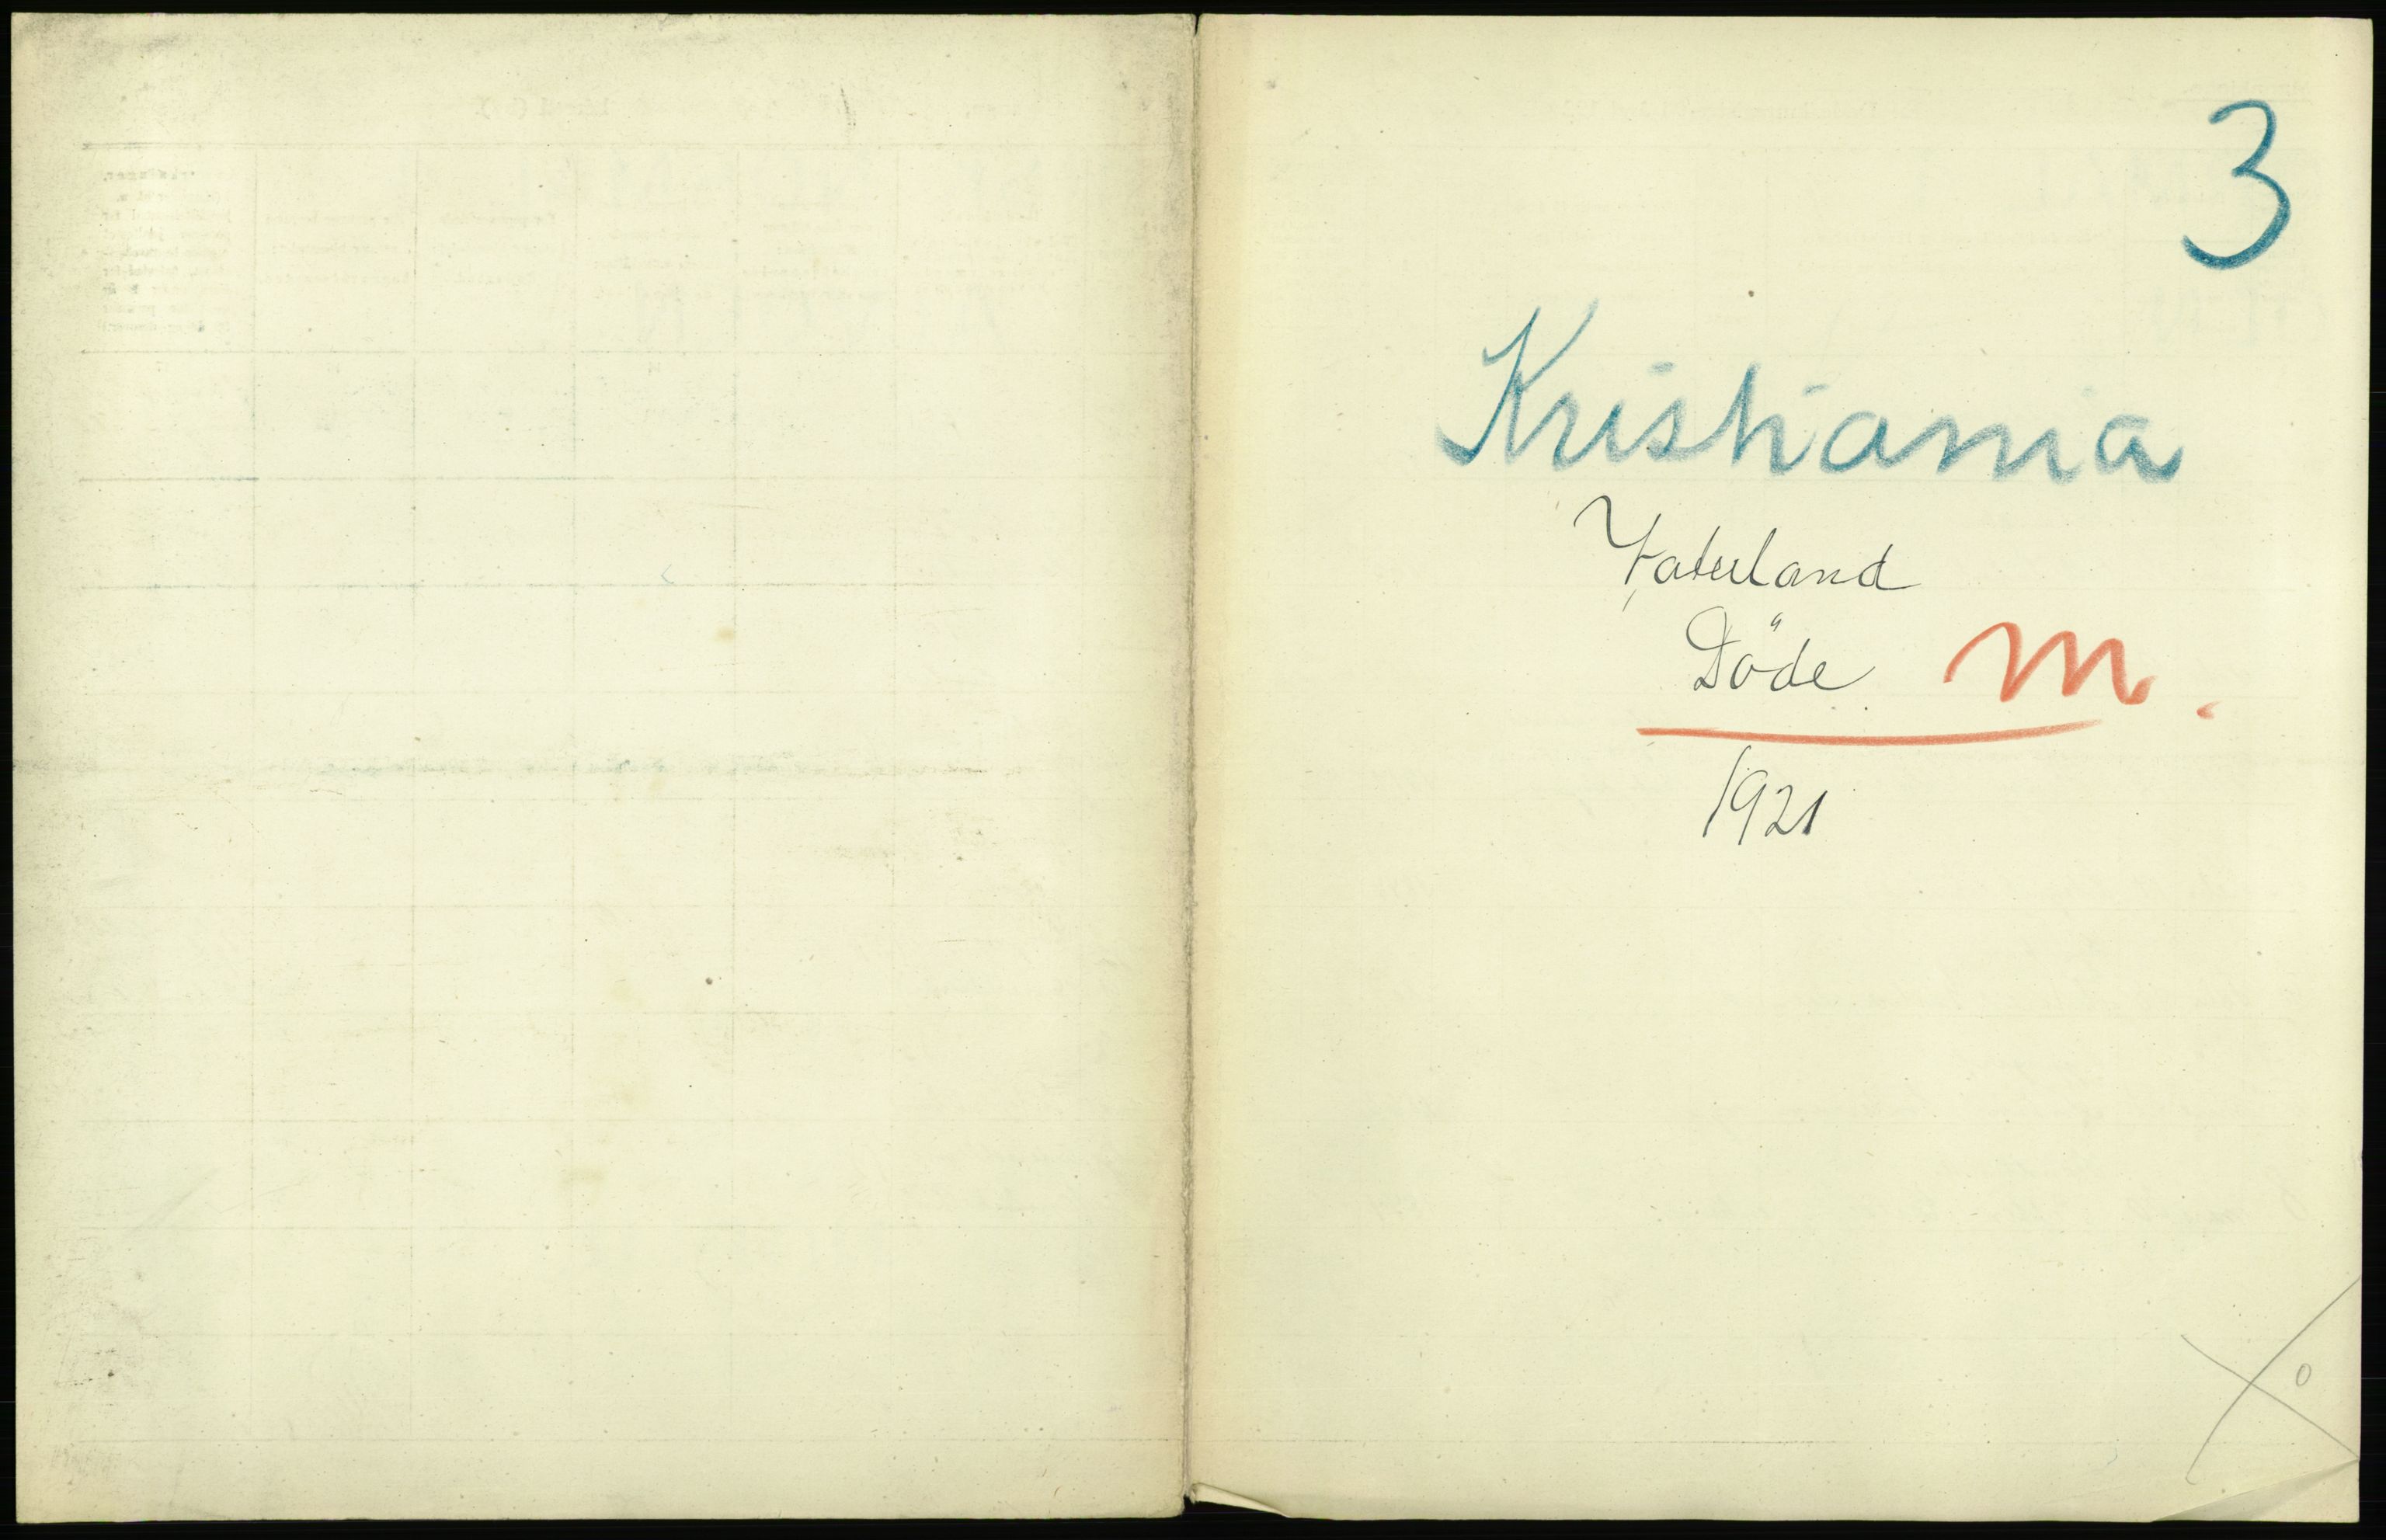 3
Kristiania
Vaterland
Döde M.
1921
0